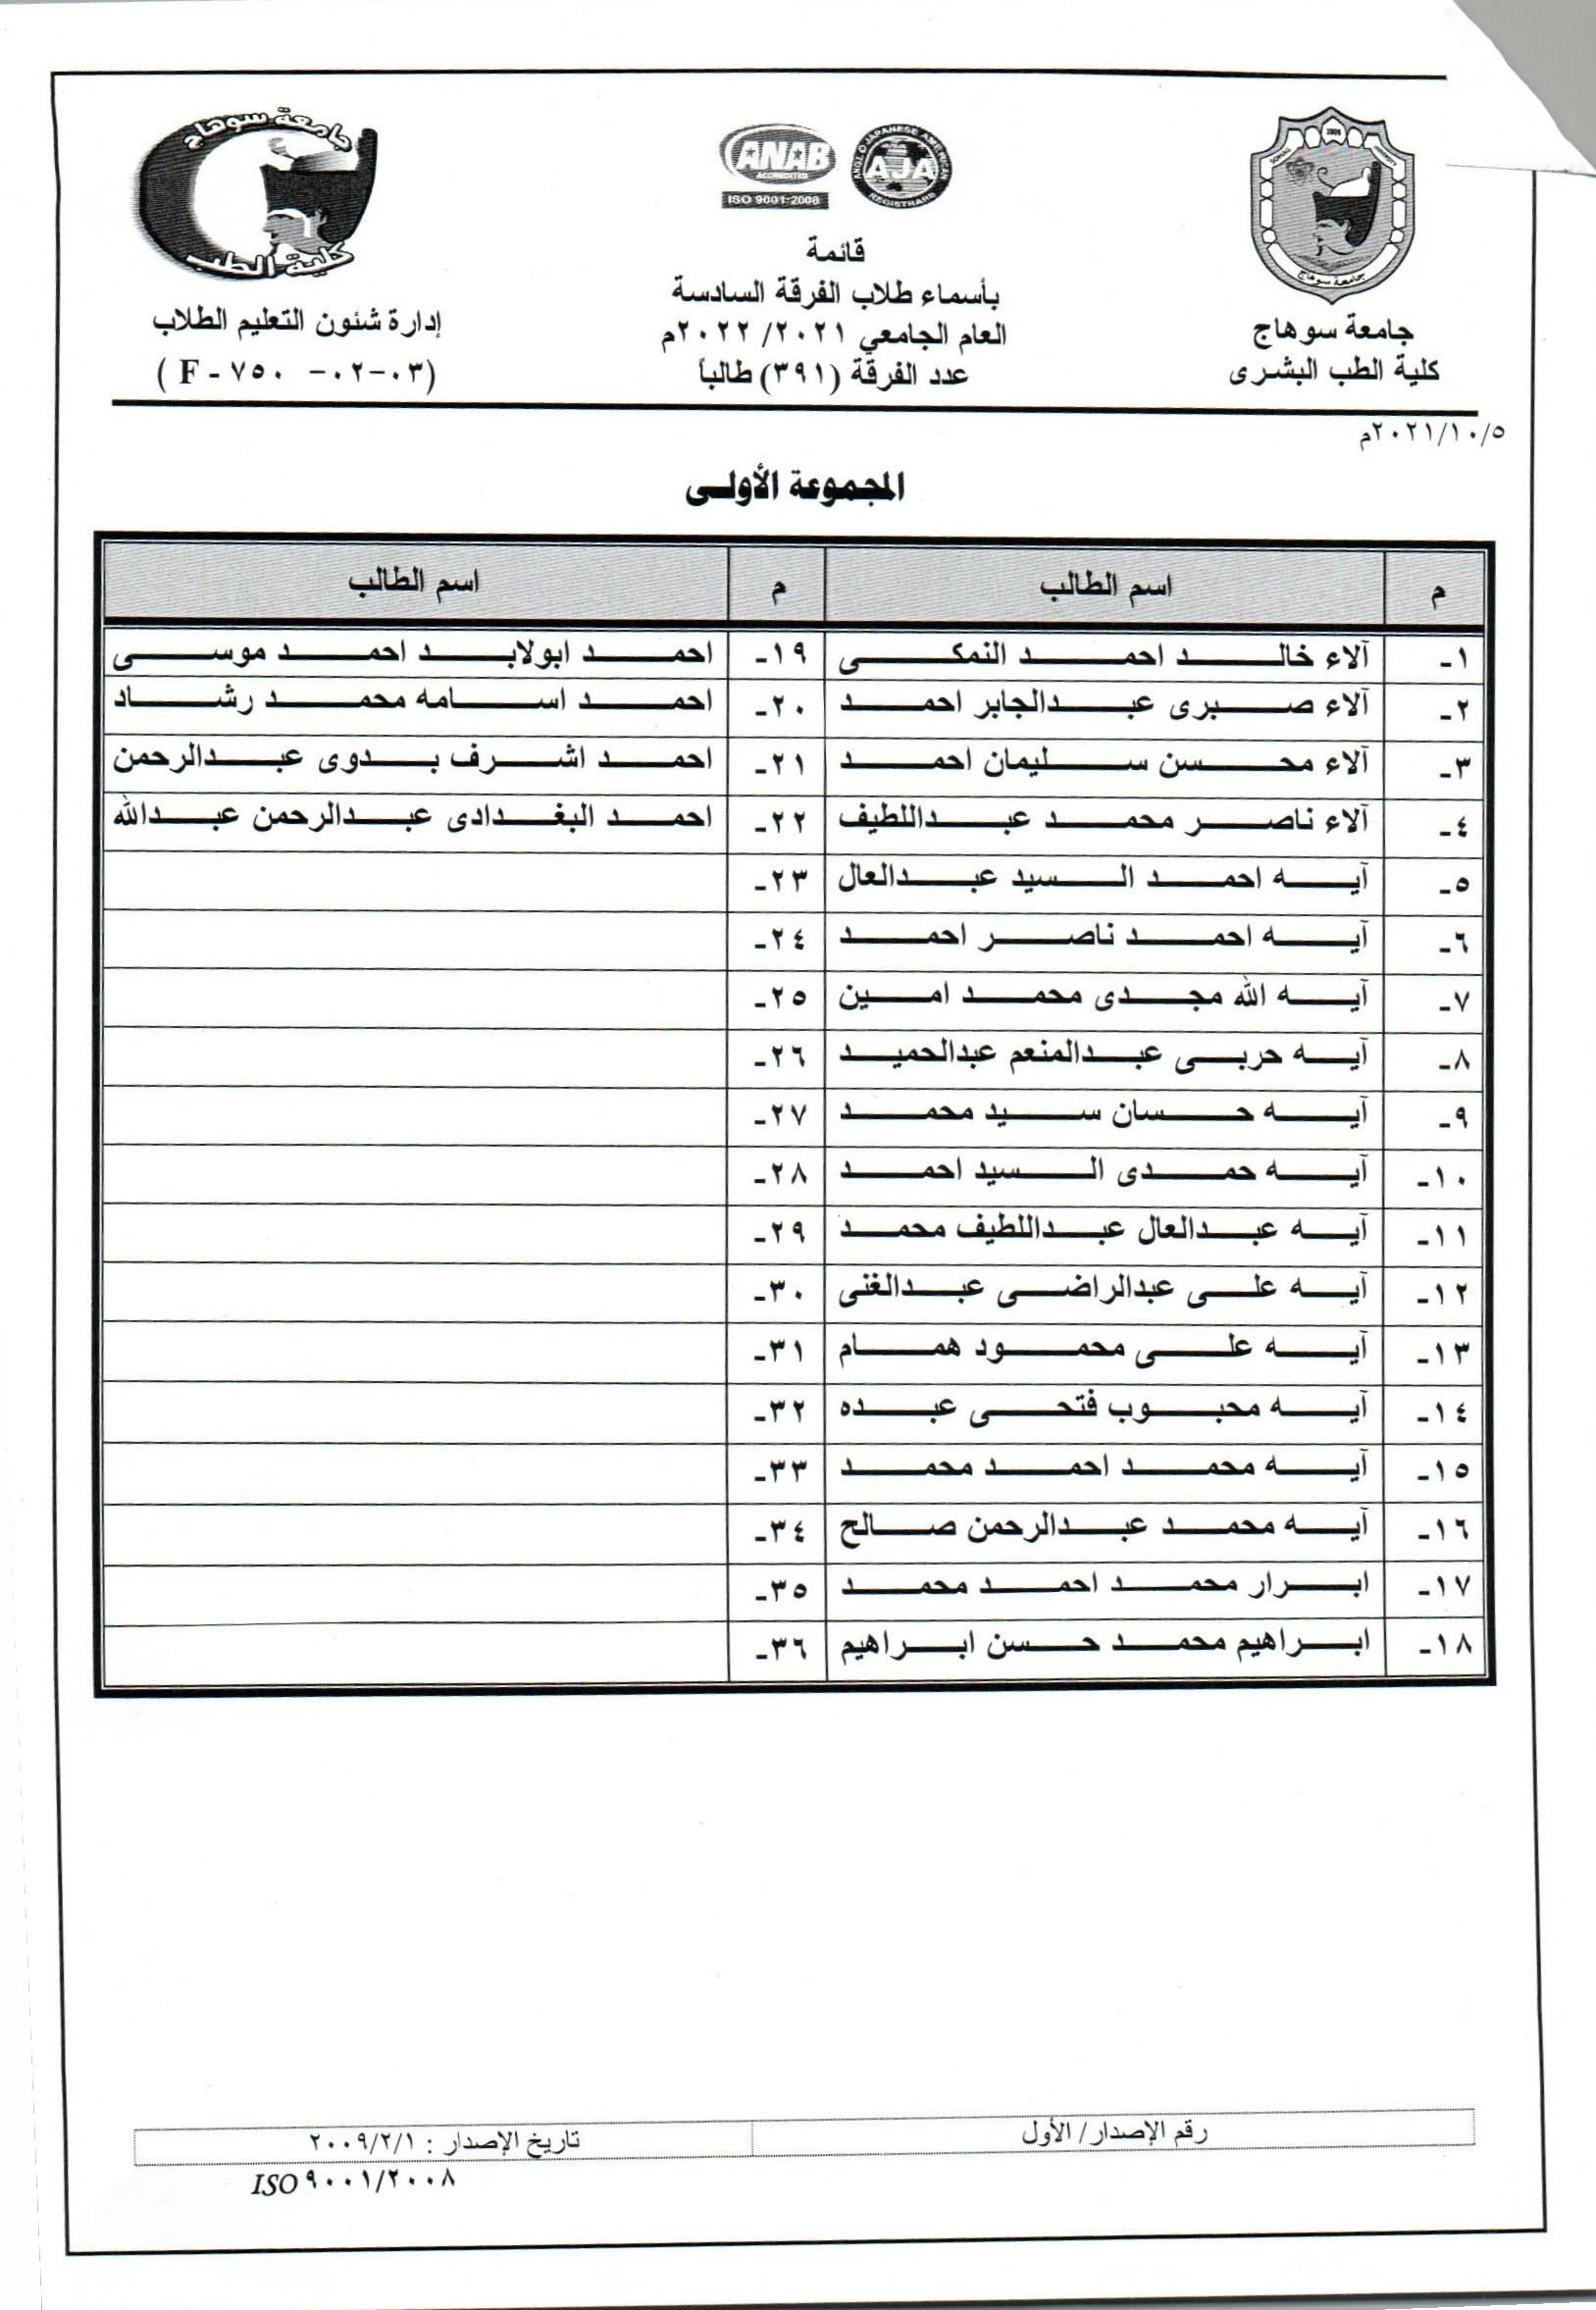 جامعة سوهاج
كلية الطب
ANAB
ACCREDITED
ISO 9001:2008
ANGLO JAPANESE AMERICAN
AJA
REGISTRARS
SOHAG
2006
UNIVERSITY
جامعة سوهاج
جامعة سوهاج
كلية الطب البشرى
قائمة
بأسماء طلاب الفرقة السادسة
العام الجامعي ٢٠٢١/ ٢٠٢٢م
عدد الفرقة (٣٩١) طالباً
إدارة شئون التعليم الطلاب
(F - ٧٥٠ -٠٢-٠٣)
٢٠٢١/١٠/٥م
المجموعة الأولى
م اسم الطالب م اسم الطالب
١- آلاء خالد احمد النمكى ١٩- احمد ابولابد احمد موسى
٢- آلاء صبرى عبدالجابر احمد ٢٠- احمد اسامه محمد رشاد
٣- آلاء محسن سليمان احمد ٢١- احمد اشرف بدوى عبدالرحمن
٤- آلاء ناصر محمد عبداللطيف ٢٢- احمد البغدادى عبدالرحمن عبدالله
٥- آيه احمد السيد عبدالعال ٢٣-
٦- آيه احمد ناصر احمد ٢٤-
٧- آيه الله مجدى محمد امين ٢٥-
٨- آيه حربى عبدالمنعم عبدالحميد ٢٦-
٩- آيه حسان سيد محمد ٢٧-
١٠- آيه حمدى السيد احمد ٢٨-
١١- آيه عبدالعال عبداللطيف محمد ٢٩-
١٢- آيه على عبدالراضى عبدالغنى ٣٠-
١٣- آيه على محمود همام ٣١-
١٤- آيه محبوب فتحى عبده ٣٢-
١٥- آيه محمد احمد محمد ٣٣-
١٦- آيه محمد عبدالرحمن صالح ٣٤-
١٧- ابرار محمد احمد محمد ٣٥-
١٨- ابراهيم محمد حسن ابراهيم ٣٦-
رقم الإصدار/ الأول تاريخ الإصدار : ٢٠٠٩/٢/١
ISO ٩٠٠١/٢٠٠٨